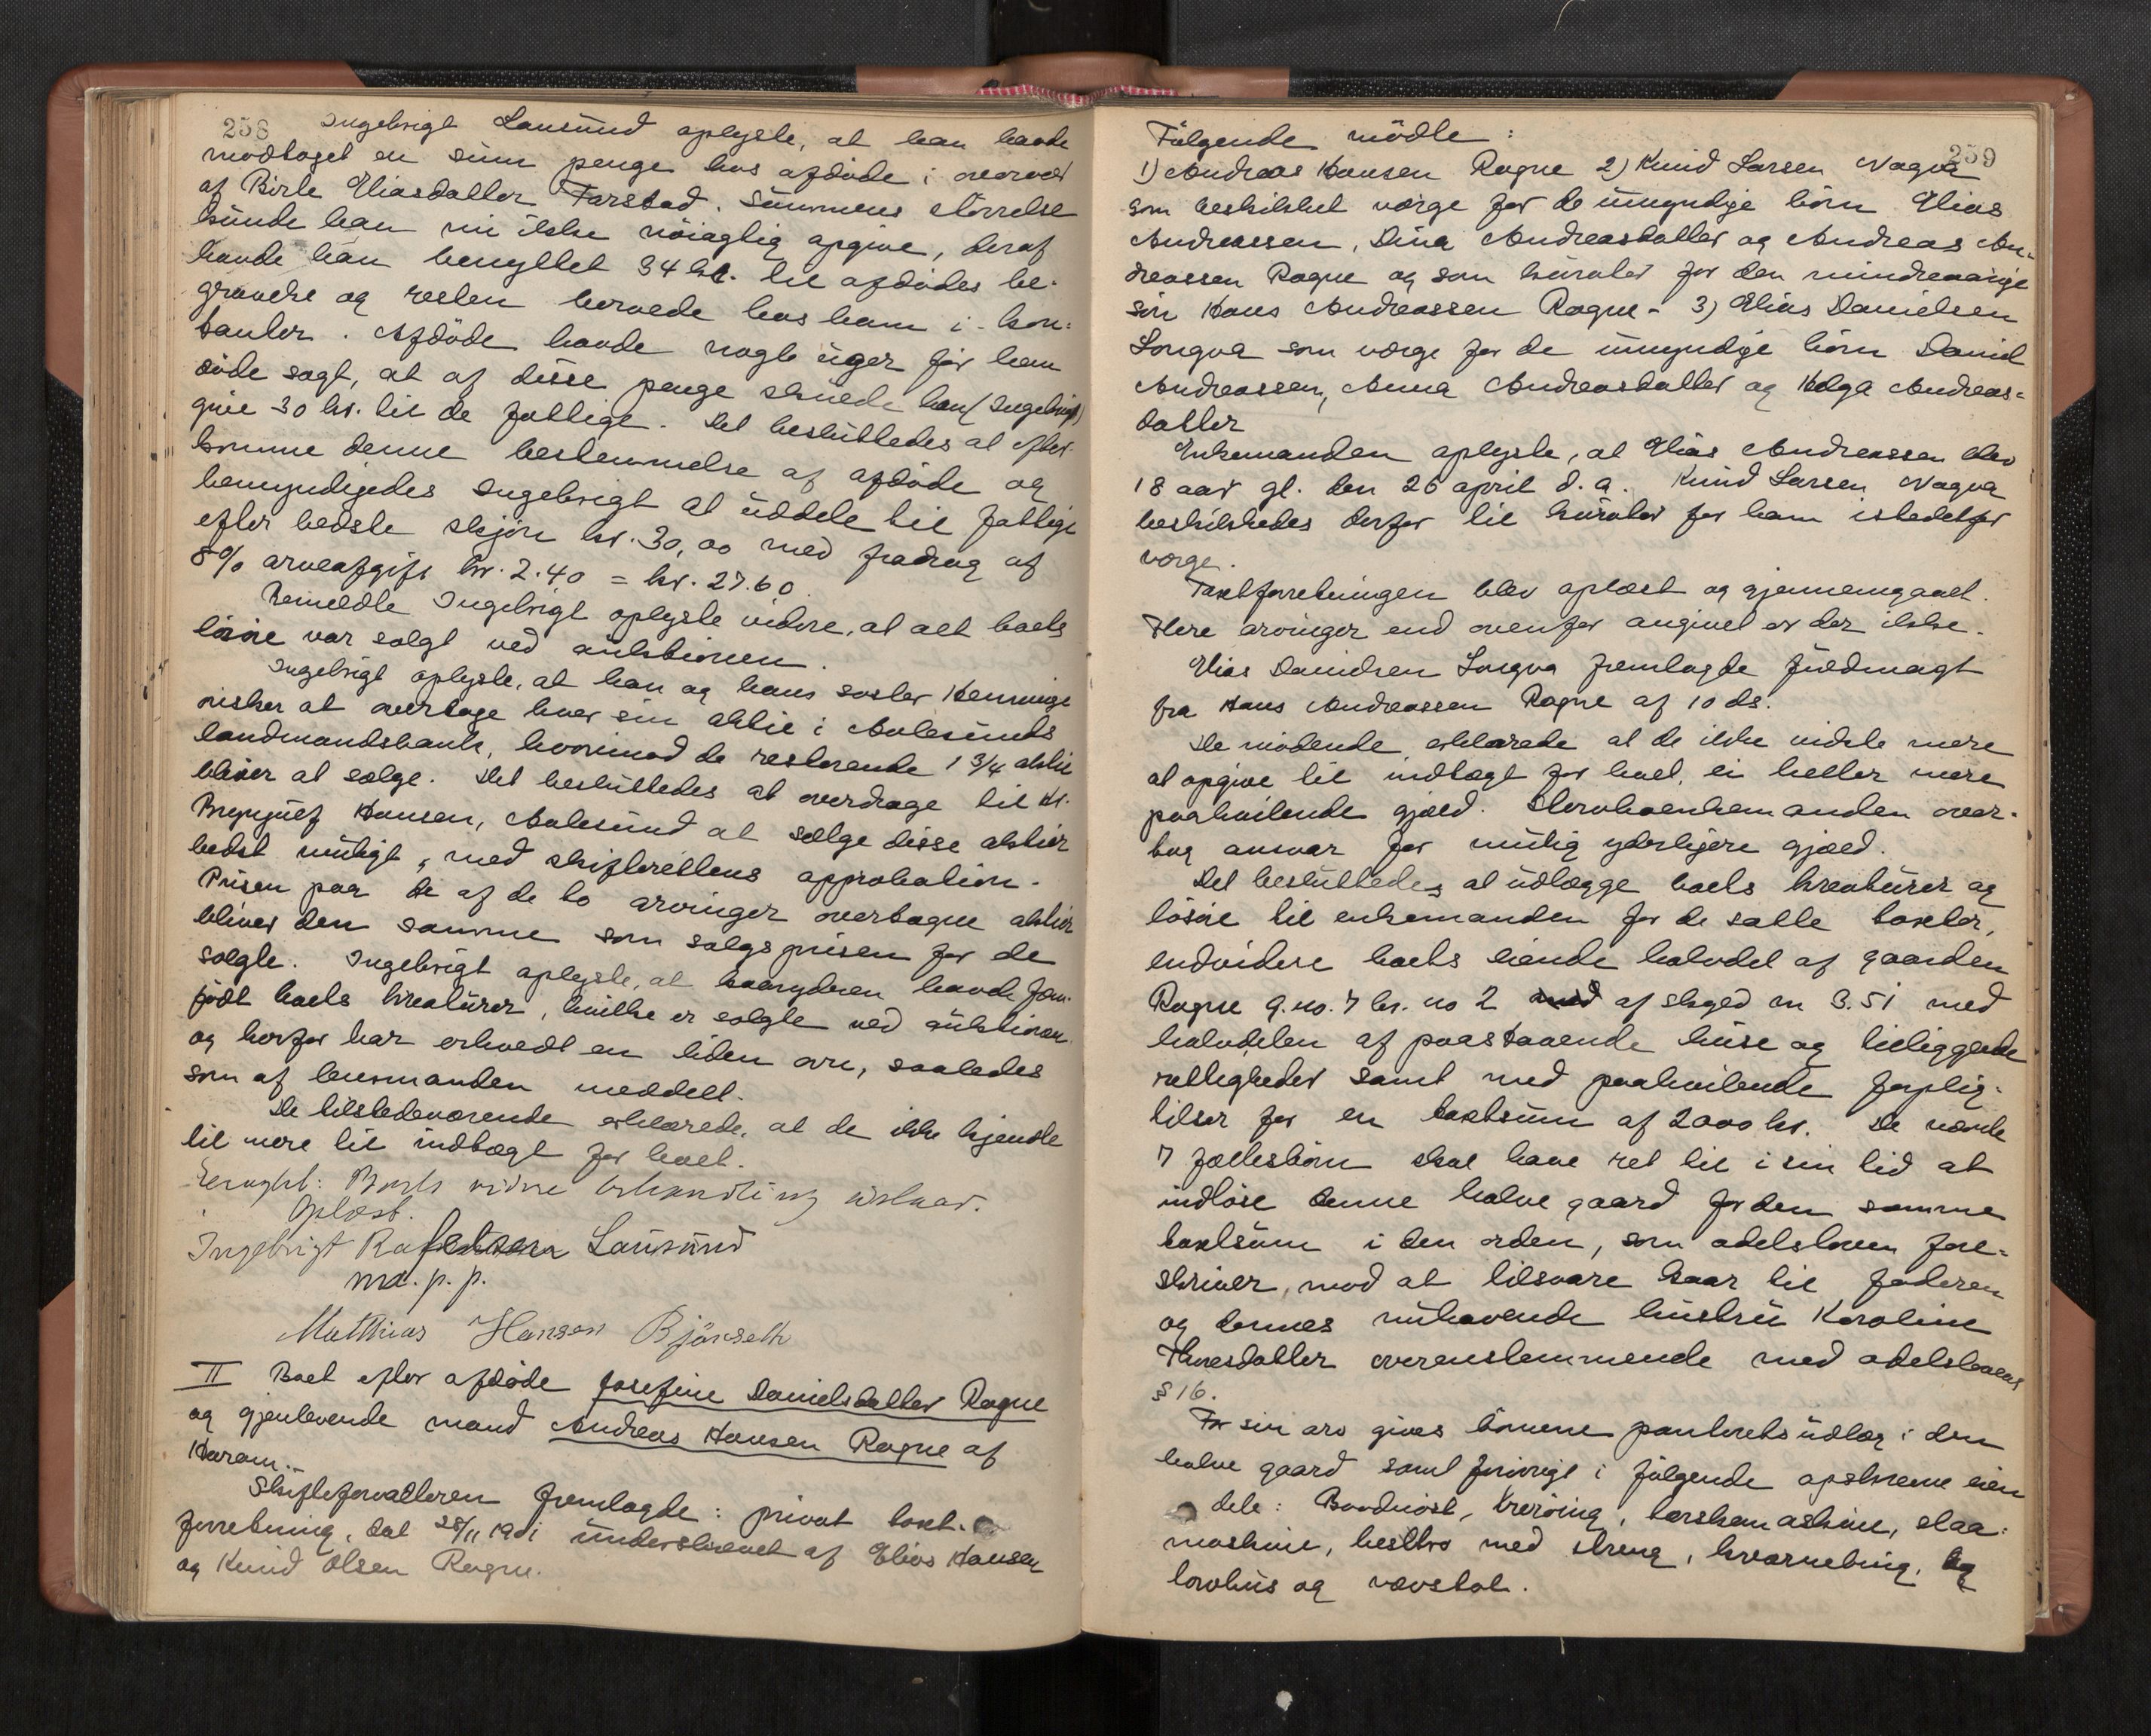 258
Ingebrigt Lausund oplyste, at han havde
modtaget en sum penge hos afdøde i overvær
af Birte Eliasdatter Farstad. Summens størrelse
kunde han nu ikke nøiagtig opgive, deraf
havde han benyttet 34 kr. til afdødes be-
gravelse og resten beroede hos ham i kon-
tanter. Afdøde havde nogle uger før han
døde sagt, at af disse penge skulde han (Ingebrigt)
give 30 kr. til de fattige. Det besluttedes at efter-
komme denne bestemmelse af afdøde og
bemyndigedes Ingebrigt at uddele til fattige
efter bedste skjøn kr. 30,00 med fradrag af
8% arveafgift kr. 2.40 = kr. 27.60.
Bemeldte Ingebrigt oplyste videre, at alt boets
løsøre var solgt ved auktionen.
Ingebrigt oplyste, at han og hans søster Henninge
ønsker at overtage hver sin aktie i Aalesunds
landmandsbank, hvorimod de resterende 1 3/4 aktie
bliver at sælge. Det besluttedes at overdrage til Hr.
Brynjulf Hansen, Aalesund at sælge disse aktier
bedst muligt, med skifterettens approbation.
Prisen paa de af de to arvinger overtagne aktier
bliver den samme som salgsprisen for de
solgte. Ingebrigt oplyste, at kaaryderen havde fem-
født boets kreaturer, hvilke er solgte ved auktionen
og herfor har erholdt en liden arv, saaledes
som af lensmanden meddelt.
De tilstedeværende erklærede, at de ikke kjendte
til mere til indtægt for boet.
Eragtet: Boets vidre behandling udstaar.
Oplæst.
Ingebrigt Rafaelsen Lausund
m. p. p.
Matthias Hansen Bjørnseth
II Boet efter afdøde Josefine Danielsdatter Rogne
og gjenlevende mand Andreas Hansen Rogne af
Haram.
Skifteforvalteren fremlagde: privat taxt-
forretning, dat 28/11 1901 underskrevet af Elias Hansen
og Knud Olsen Rogne.
259
Følgende mødte:
1) Andreas Hansen Rogne 2) Knud Larsen Vagva
som beskikket værge for de umyndige børn Elias
Andreassen, Dina Andreasdatter og Andreas An-
dreassen Rogne og som kurator for den mindreaarige
søn Hans Andreassen Rogne - 3) Elias Danielsen
Longva som værge for de umyndige børn Daniel
Andreassen, Anna Andreasdatter og Helga Andreas-
datter
Enkemanden oplyste, at Elias Andreassen blev
18 aar gl. den 26 april d. a. Knud Larsen Vagva
beskikkedes derfor til kurator for ham istedetfor
værge.
Taxtforretningen blev oplæst og gjennemgaaet.
Flere arvinger end ovenfor angivet er der ikke.
Elias Danielsen Longva fremlagde fuldmagt
fra Hans Andreassen Rogne af 10 ds.
De mødende erklærede at de ikke vidste mere
at opgive til indtægt for boet, ei heller mere
paahvilende gjæld. Stervboenkemanden over-
tog ansvar for mulig yderligere gjæld.
Det besluttedes at udlægge boets kreaturer og
løsøre til enkemanden for de satte taxter,
endvidere boets eiende halvdel af gaarden
Rogne g.no. 7 br. no 2 af skyld m 3.51 med
halvdelen af paastaaende huse og tilliggende
rettigheder samt med paahvilende forplig-
telser for en taxtsum af 2000 kr. De nævnte
7 fællesbørn skal have ret til i sin tid at
indløse denne halve gaard for den samme
taxtsum i den orden, som odelsloven fore-
skriver, mod at tilsvare kaar til faderen
og dennes nuhavende hustru Karoline
Thoresdatter overensstemmende med odelslovens
§ 16.
For sin arv gives børnene panterets udlæg i den
halve gaard samt forøvrigt i følgende opskrevne eien
dele: Baadnøst, treroing, tærskemaskine, slaa-
maskine, hestkro med streng, kværnebrug,
torvhus og vævstol.